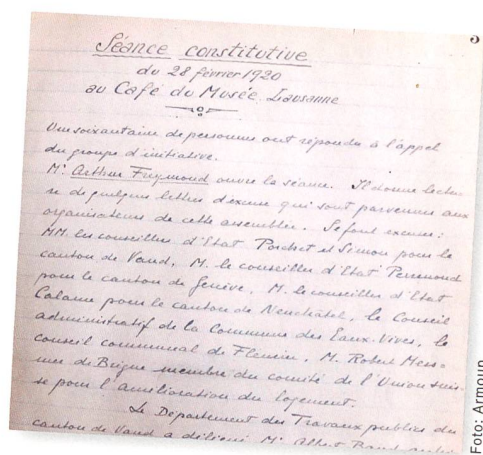 Séance constitutive
du 28 février 1920
au Café du Musée Lausanne
Une soixantaine de personnes ont répondu à l'appel
du groupe d'initiative.
Mr Arthur Freymond ouvre la séance. Il donne lectu-
re de quelques lettres d'excuse qui sont parvenues aux
organisateurs de cette assemblée. Se font excuser:
MM. les conseillers d'Etat Porchet et Simon pour le
canton de Vaud, M. le conseiller d'Etat Perrenoud
pour le canton de Genève, M. le conseiller d'Etat
Calame pour le canton de Neuchâtel, le Conseil
administratif de la Commune des Eaux-Vives, le
conseil communal de Fleurier, M. Robert
de Brigue membre du comité de l'Union suis-
se pour l'amélioration du logement.
Le Département des Travaux publics du
canton de Vaud a délégué Mr Albert
Foto: Armoup